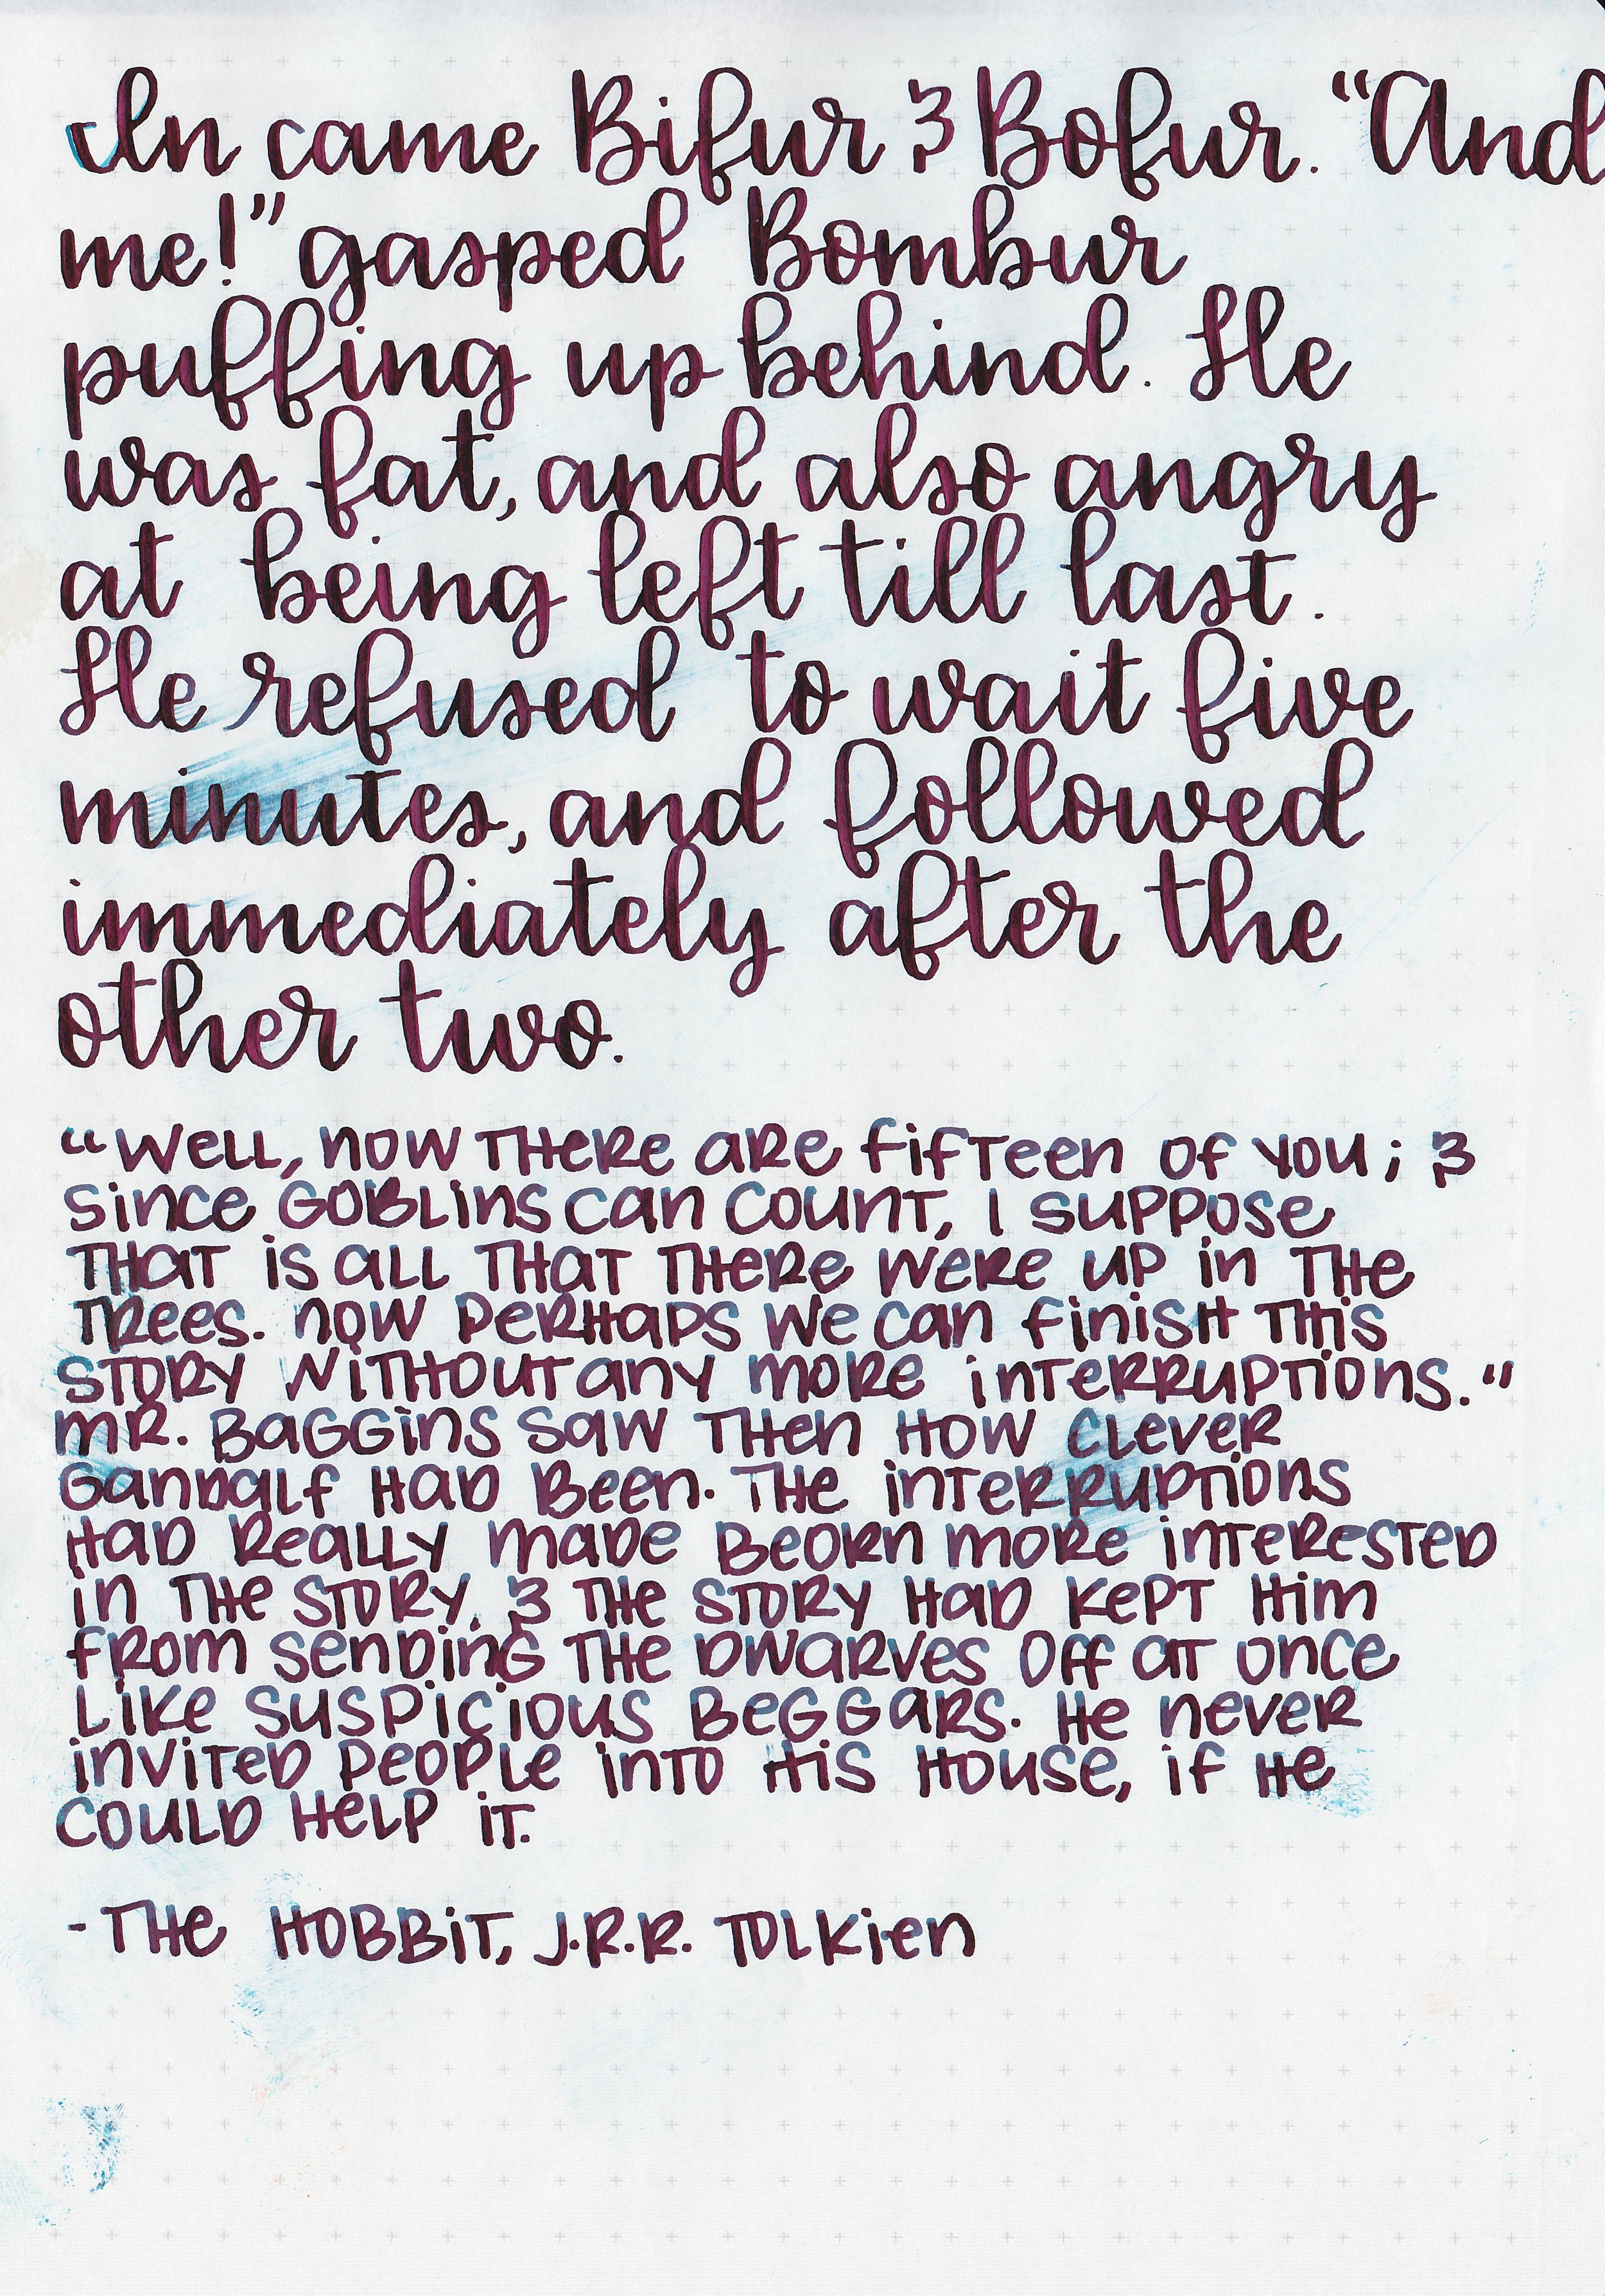 In came Bifur & Bofur. "And
me!" gasped Bombur
puffing up behind. He
was fat, and also angry
at being left till last.
He refused to wait five
minutes, and followed
immediately after the
other two.
"Well, now there are fifteen of you; &
since goblins can count, I suppose
that is all that there were up in the
trees. Now perhaps we can finish this
story without any more interruptions."
Mr. Baggins saw then how clever
Gandalf had been. The interruptions
had really made Beorn more interested
in the story, & the story had kept him
from sending the dwarves off at once
like suspicious beggars. He never
invited people into his house, if he
could help it.
-The Hobbit, J.R.R. Tolkien